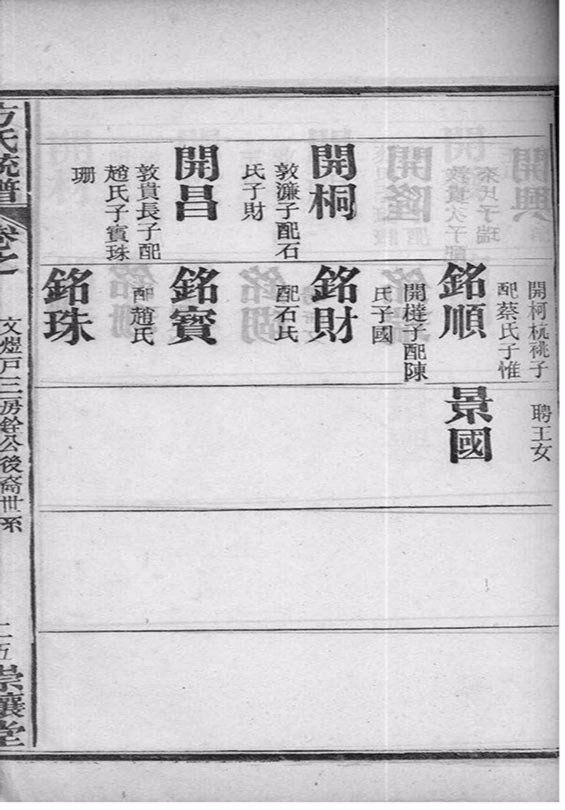 開桐
敦濂子配石
氏子財
開昌
敦貴長子配
趙氏子賓珠
珊
開柯杭祧子
配蔡氏子惟
銘順
開子配陳
氏子國
銘財
配石氏
銘賓
配趙氏
銘珠
聘王女
景國
方氏統譜
卷之
文煜戶三房銓公後裔世系
二五
崇讓堂